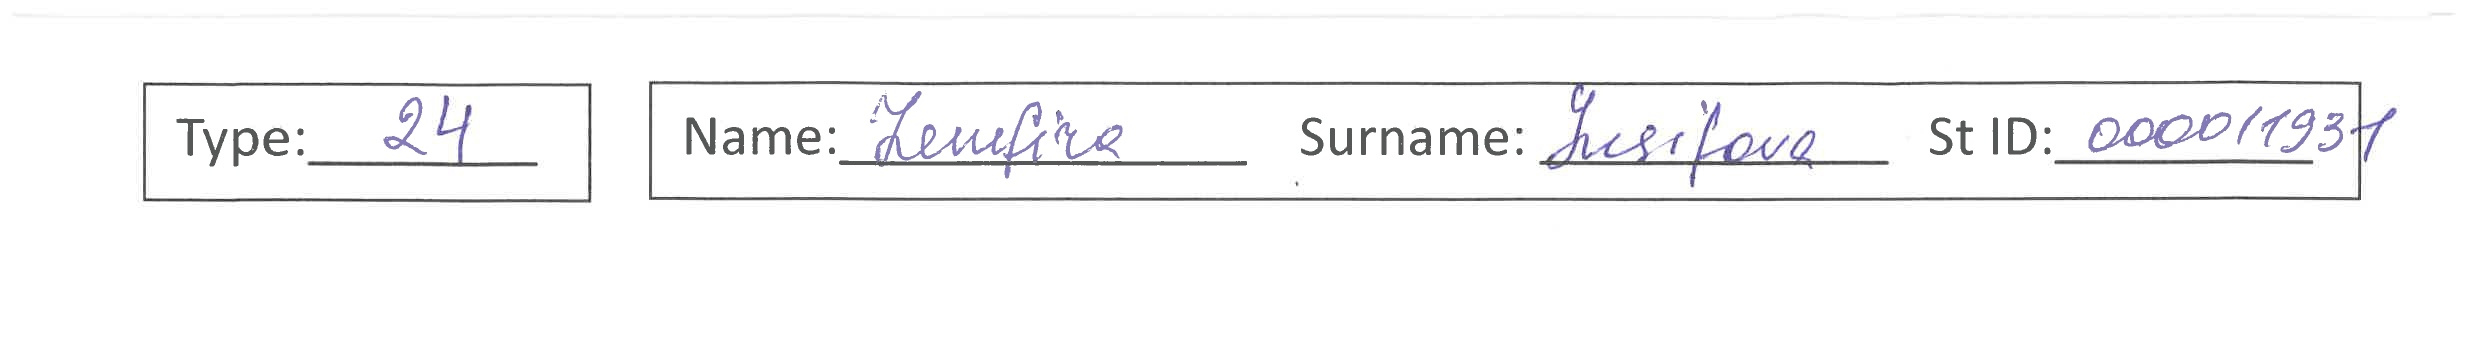 Type: 24 Name: Zemfira Surname: Yusifova St ID: 000011931